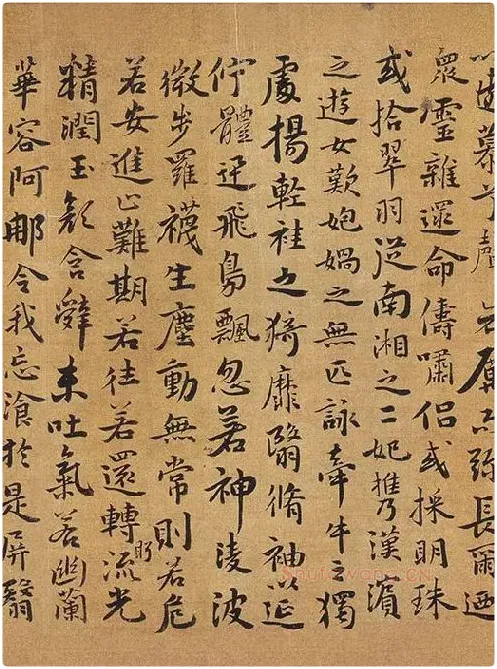 以遠慕兮聲哀厲而弥長爾迺
衆靈雜遝命儔嘯侶或採明珠
或拾翠羽從南湘之二妃攜漢濱
之遊女歎匏媧之無匹詠牽牛之獨
處揚輕袿之猗靡翳脩袖以延
佇體迅飛鳧飄忽若神淩波
微步羅襪生塵動無常則若危
若安進止難期若往若還轉眄流光
精潤玉顏含辭未吐氣若幽蘭
華容阿那令我忘飡於是屏翳